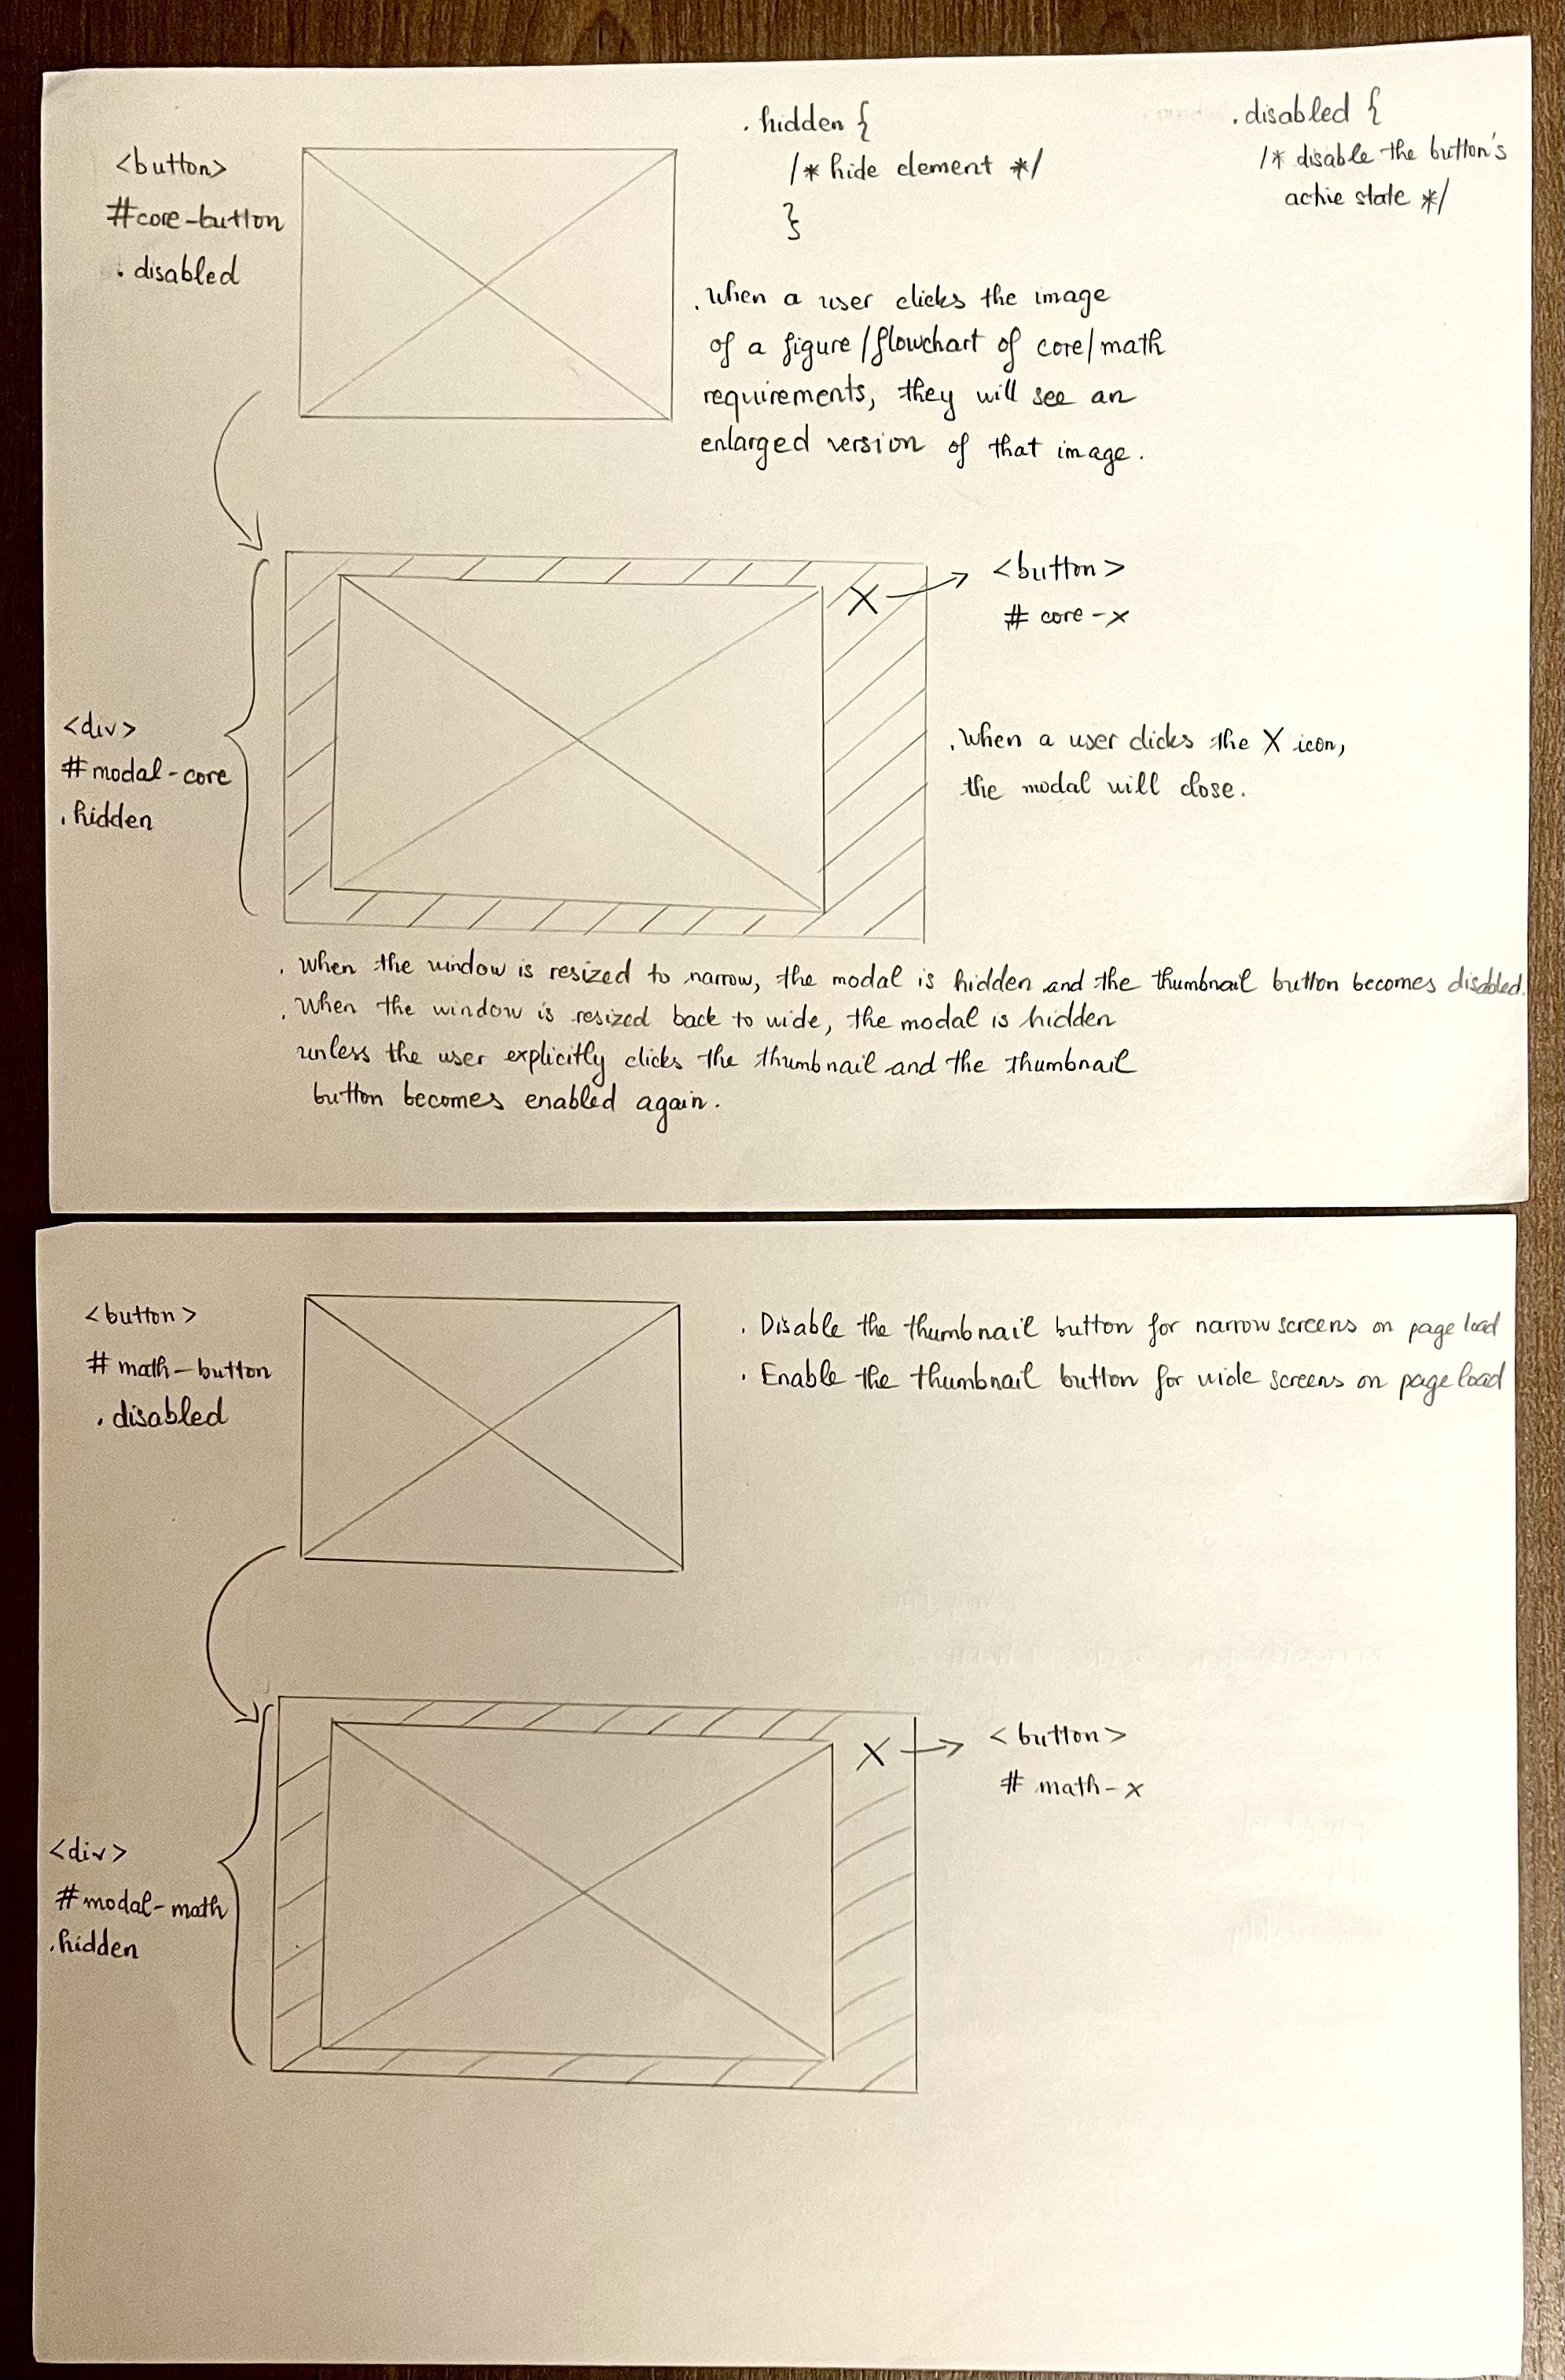 <button>
#core-button
. disabled
. hidden {
/* hide element */
}
. disabled {
/* disable the button's
active state */
. When a user clicks the image
of a figure/flowchart of core/math
requirements, they will see an
enlarged version of that image.
X
<button>
# core-x
<div>
#modal-core
. hidden
. When a user clicks the X icon,
the modal will close.
. When the window is resized to narrow, the modal is hidden and the thumbnail button becomes disabled.
. When the window is resized back to wide, the modal is hidden
unless the user explicitly clicks the thumbnail and the thumbnail
button becomes enabled again.
<button>
# math-button
. disabled
. Disable the thumbnail button for narrow screens on page load
. Enable the thumbnail button for wide screens on page load
X
<button>
# math-x
<div>
#modal-math
.hidden